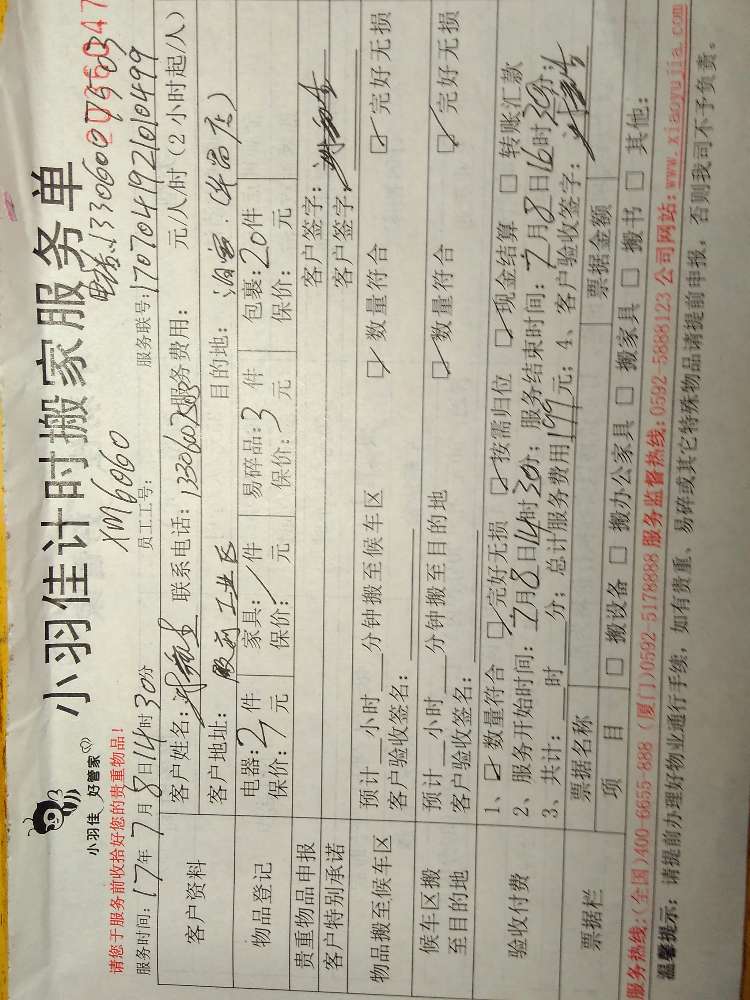 小羽佳 好管家
小羽佳计时搬家服务单
XM6060
请您于服务前收拾好您的贵重物品！
服务时间：17年7月8日14时30分 员工工号： 服务联号：1707041921010499
客户资料
客户姓名： 联系电话： 服务费用： 元/人/时（2小时起/人）
客户地址： 工业区 目的地：
物品登记
电器：2件 家具：1件 易碎品：3件 包裹：20件
保价： 元 保价： 元 保价： 元 保价： 元
贵重物品申报 客户签字：
客户特别承诺 客户签字：
物品搬至候车区
预计 小时 分钟搬至候车区 ☑ 数量符合 ☑ 完好无损
客户验收签名：
候车区搬至目的地
预计 小时 分钟搬至目的地 ☑ 数量符合 ☑ 完好无损
客户验收签名：
验收付费
1、☑ 数量符合 ☑ 完好无损 ☑ 按需归位 ☑ 现金结算 □ 转账汇款
2、服务开始时间：7月8日14时30分；服务结束时间：7月8日16时30分；
3、共计： 时 分；总计服务费用199元；4、客户验收签字：
票据栏
票据名称 票据金额
项目 □ 搬设备 □ 搬办公家具 □ 搬家具 □ 搬书 □ 其他：
服务热线：(全国)400-6655-888 (厦门)0592-5178888 服务监督热线：0592-5888123 公司网站：www.xiaoyujia.com
温馨提示：请提前办理好物业通行手续，如有贵重、易碎或其它特殊物品请提前申报，否则我司不予负责。